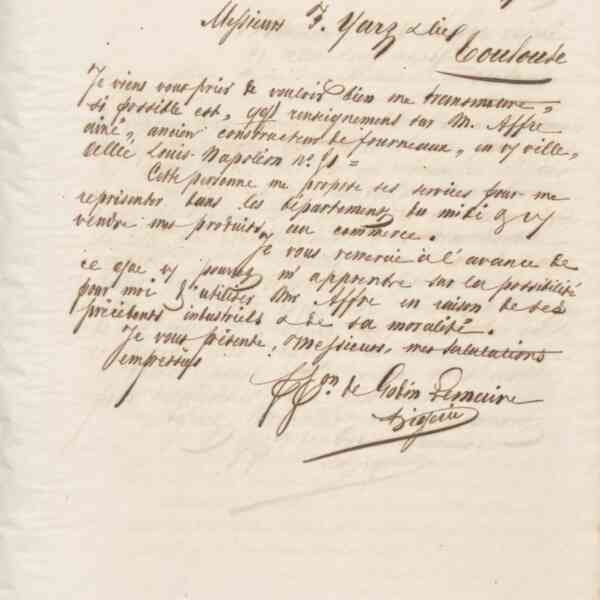 Messieurs F. Yarz & Cie
Toulouse
Je viens vous prier de vouloir bien me transmettre,
si possible est, qqs renseignements sur M. Affre
ainé, ancien constructeur de fourneaux, en vv ville,
allée Louis Napoléon nº
Cette personne me propose ses services pour me
représenter dans les départements du midi & y
vendre mes produits au commerce.
Je vous remercie à l'avance de
ce que vs pourrez m'apprendre sur la possibilité
pour moi d'utiliser Mr Affre en raison de ses
précédents industriels & de sa moralité.
Je vous présente, Messieurs, mes salutations
empressées
de Godin Lemaire